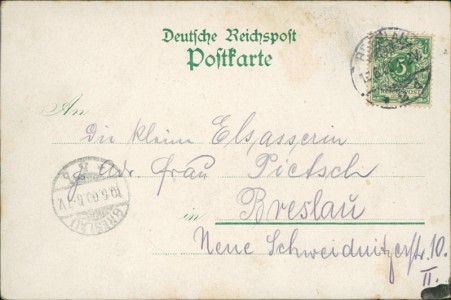 Deutsche Reichspost
Postkarte
An
Die kleine Elsasserin
adr. Frau Pietsch
in Breslau
Neue Schweidnitzerstr. 10.
II.
BRESLAU
10.6.00.
5